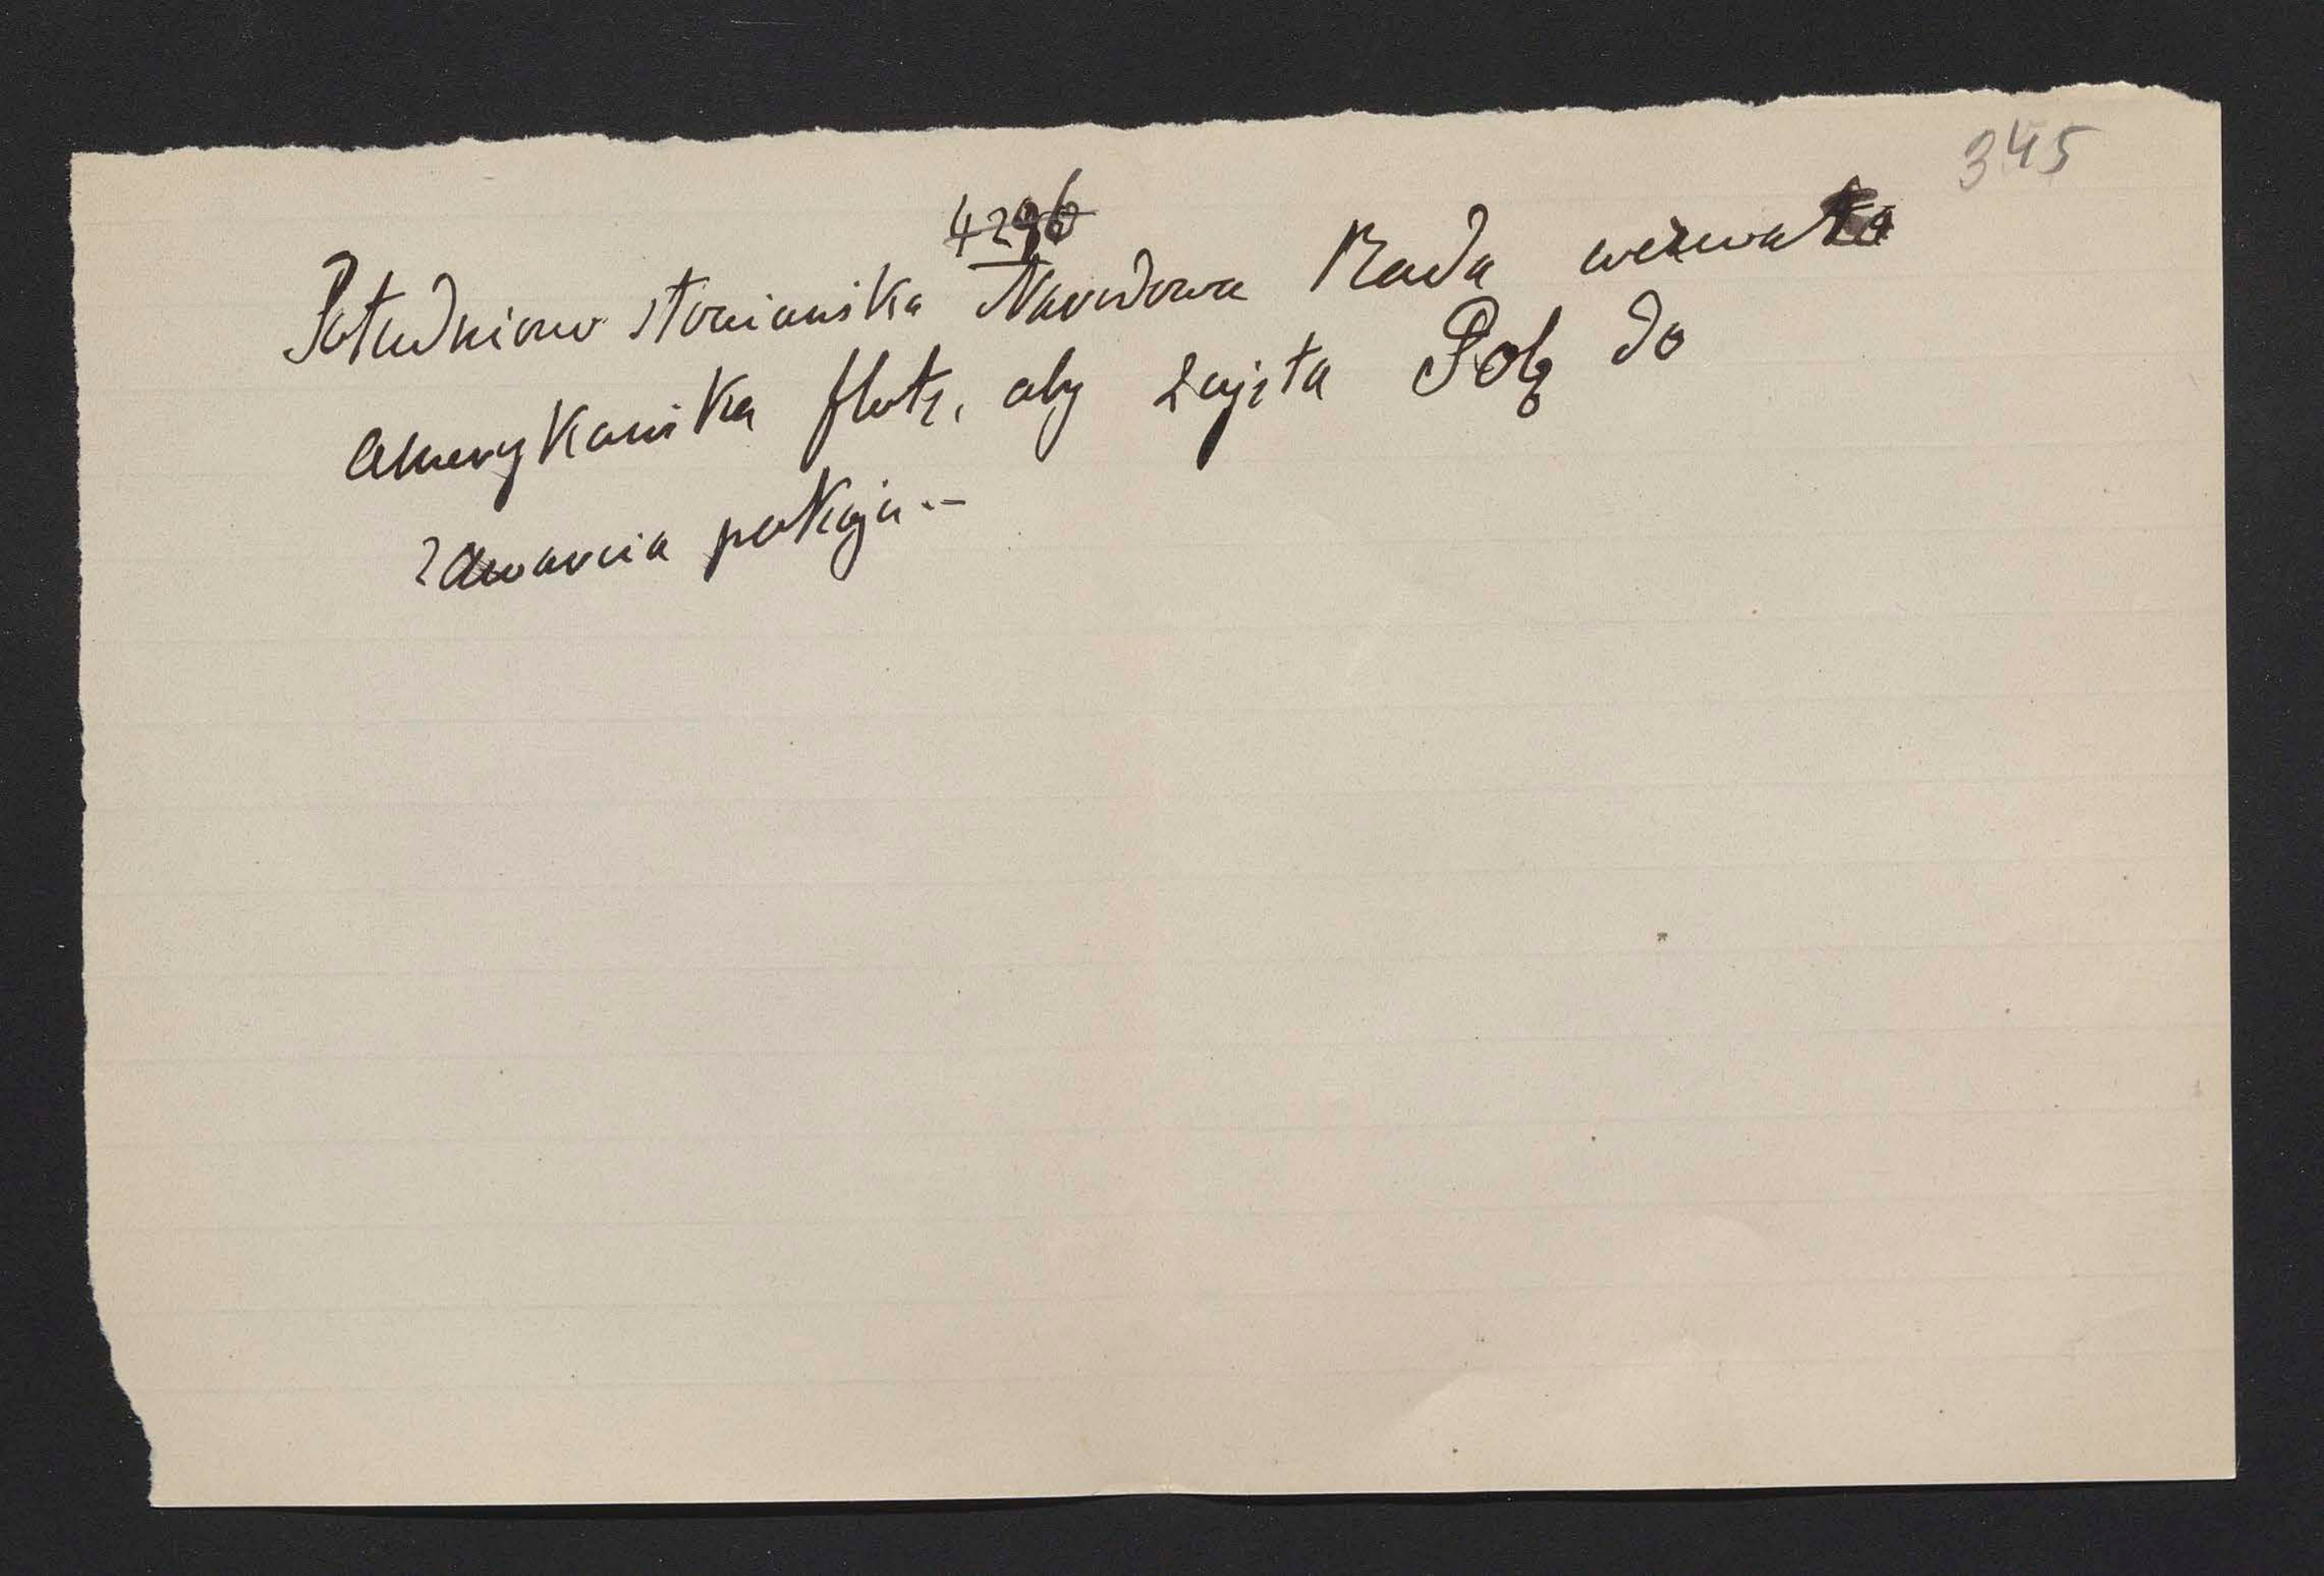 345
4296
Południowo słowiańska Narodowa Rada wezwała
amerykańską flotę, aby zajęła Polę do
zawarcia pokoju.-